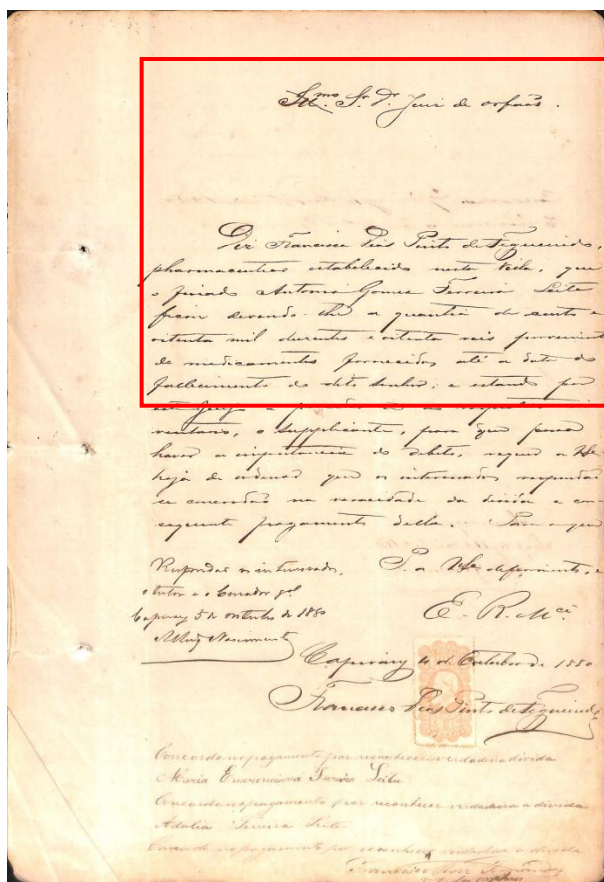 Illmo. Sr. Dr. Juiz de orfãos.
Diz Francisco Dias Pinto de Figueiredo,
pharmaceutico estabelecido nesta Villa, que
o finado Antonio Gomes Ferreira Leite
ficou devendo-lhe a quantia de cento e
oitenta mil duzentos e oitenta reis proveniente
de medicamentos fornecidos até a data do
fallecimento do dito Senhor; e estando por
este Juizo a proceder-se ao respectivo in-
ventario, o Supplicante, para que possa
haver a importancia do debito, requer a VSa.
haja de ordenar que os interessados respondão
se concordão na veracidade da divida e con-
sequente pagamento della. Para o que
P. a VSa. deferimento, e
E. R. Mcê.
Respondão os interessados,
o tutor e o Curador gal.
Capivary 5 de outubro de 1880
Nascimento
Capivary 4 de Outubro de 1880
Francisco Dias Pinto de Figueiredo
Concordo no pagamento por reconhecer verdadeira a divida
Maria Ferreira Leite
Concordo no pagamento por reconhecer verdadeira a divida
Adelia Ferreira Leite
Concordo no pagamento por reconhecer verdadeira a divida
Francisco